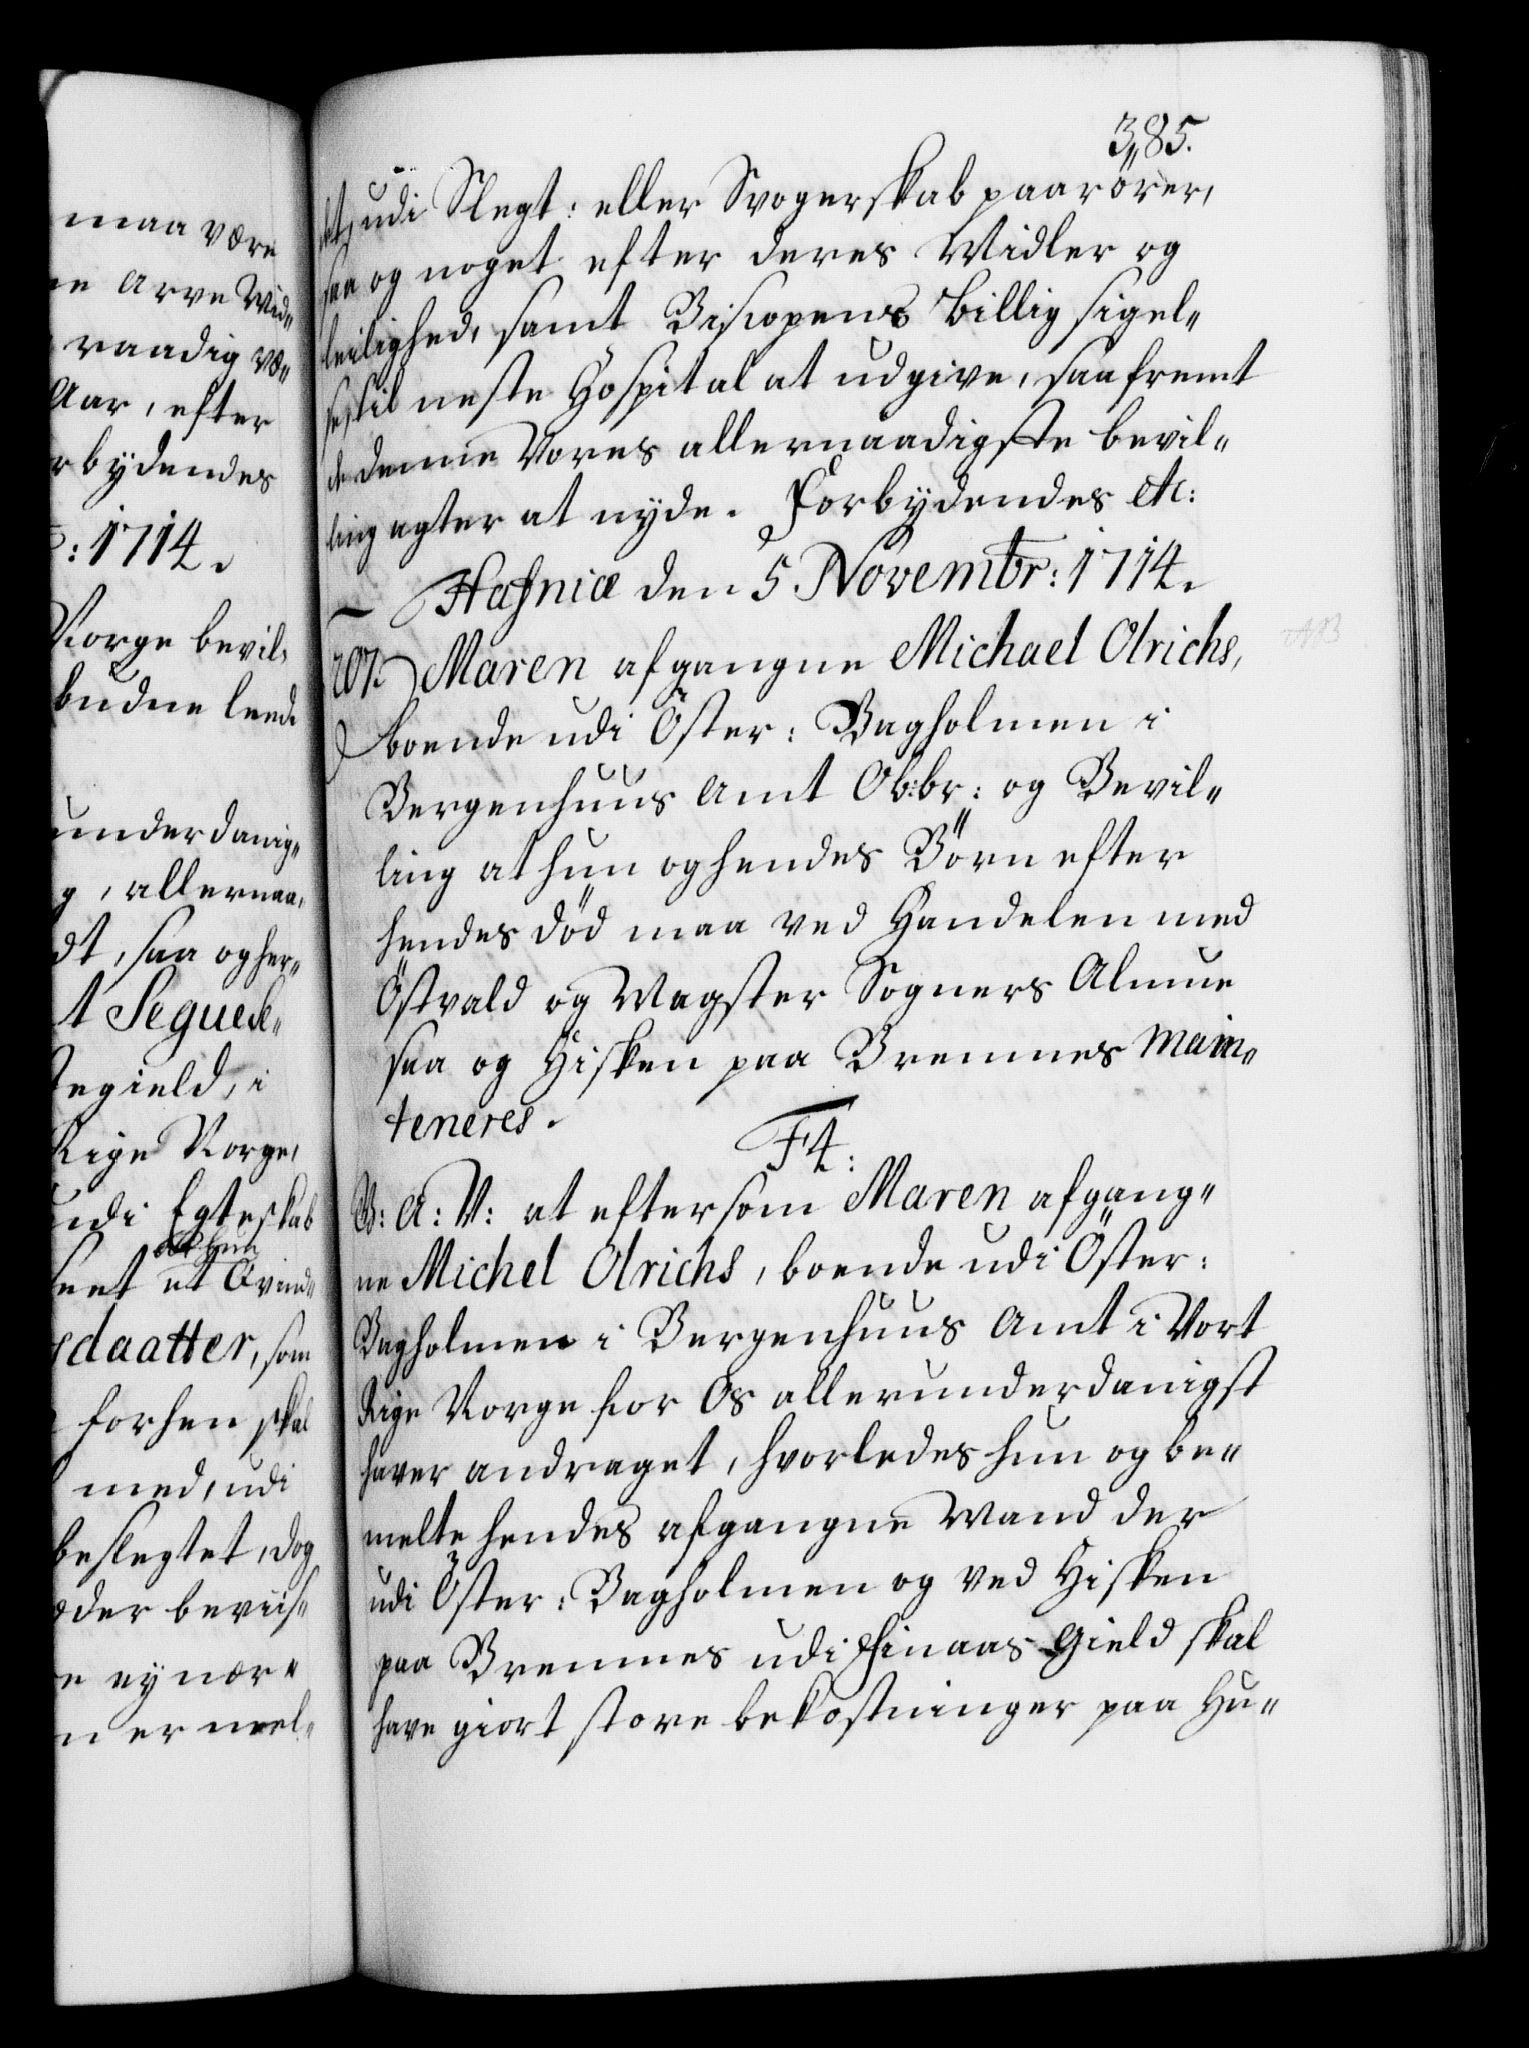 maa være
ne Arve Mid„
raadig væ„
Aar, efter
rbÿdendes
: 1714.
Norge bevil„
budne leed
underdanig„
g, allernaa„
dt, saa og her„
t Segueld„
egield, i
Rige Norge,
udi Egteskab
at hun
et Qvind„
sdaatter, som
forhen skal
med, udi
beslegtet, dog
der beviis„
e ey nær„
n er mel„
385.
udi Slegt: eller Svogerskab paarörer,
saa og noget efter deres Midler og
leilighed, samt Biscopens billig sigel„
se til neste Hospital at udgive, saafremt
de denne Vores allernaadigste bevil„
ling agter at nyde. Forbÿdendes etc:
Hafniæ den 5 Novembr: 1714.
Maren afgangne Michael Olrichs,
boende udi Öster: Bagholmen i
Bergenhuus Amt Ob:br: og Bevil„
ling at hun og hendes Börn efter
hendes död maa ved Handelen med
Östvald og Wagster Sogners Almue
saa og Hisken paa Bremnes main„
teneres.
F4:
G: A: V: at eftersom Maren afgang„
ne Michel Olrichs, boende udi Öster:
Bagholmen i Bergenhuus Amt i Vort
Rige Norge for Os allerunderdanigst
haver andraget, hvorledes hun og be„
melte hendes afgangne Mand der
udi Öster: Bagholmen og ved Hisken
paa Bremnes udi Finaas Gield skal
have giort store bekostninger paa Hu„